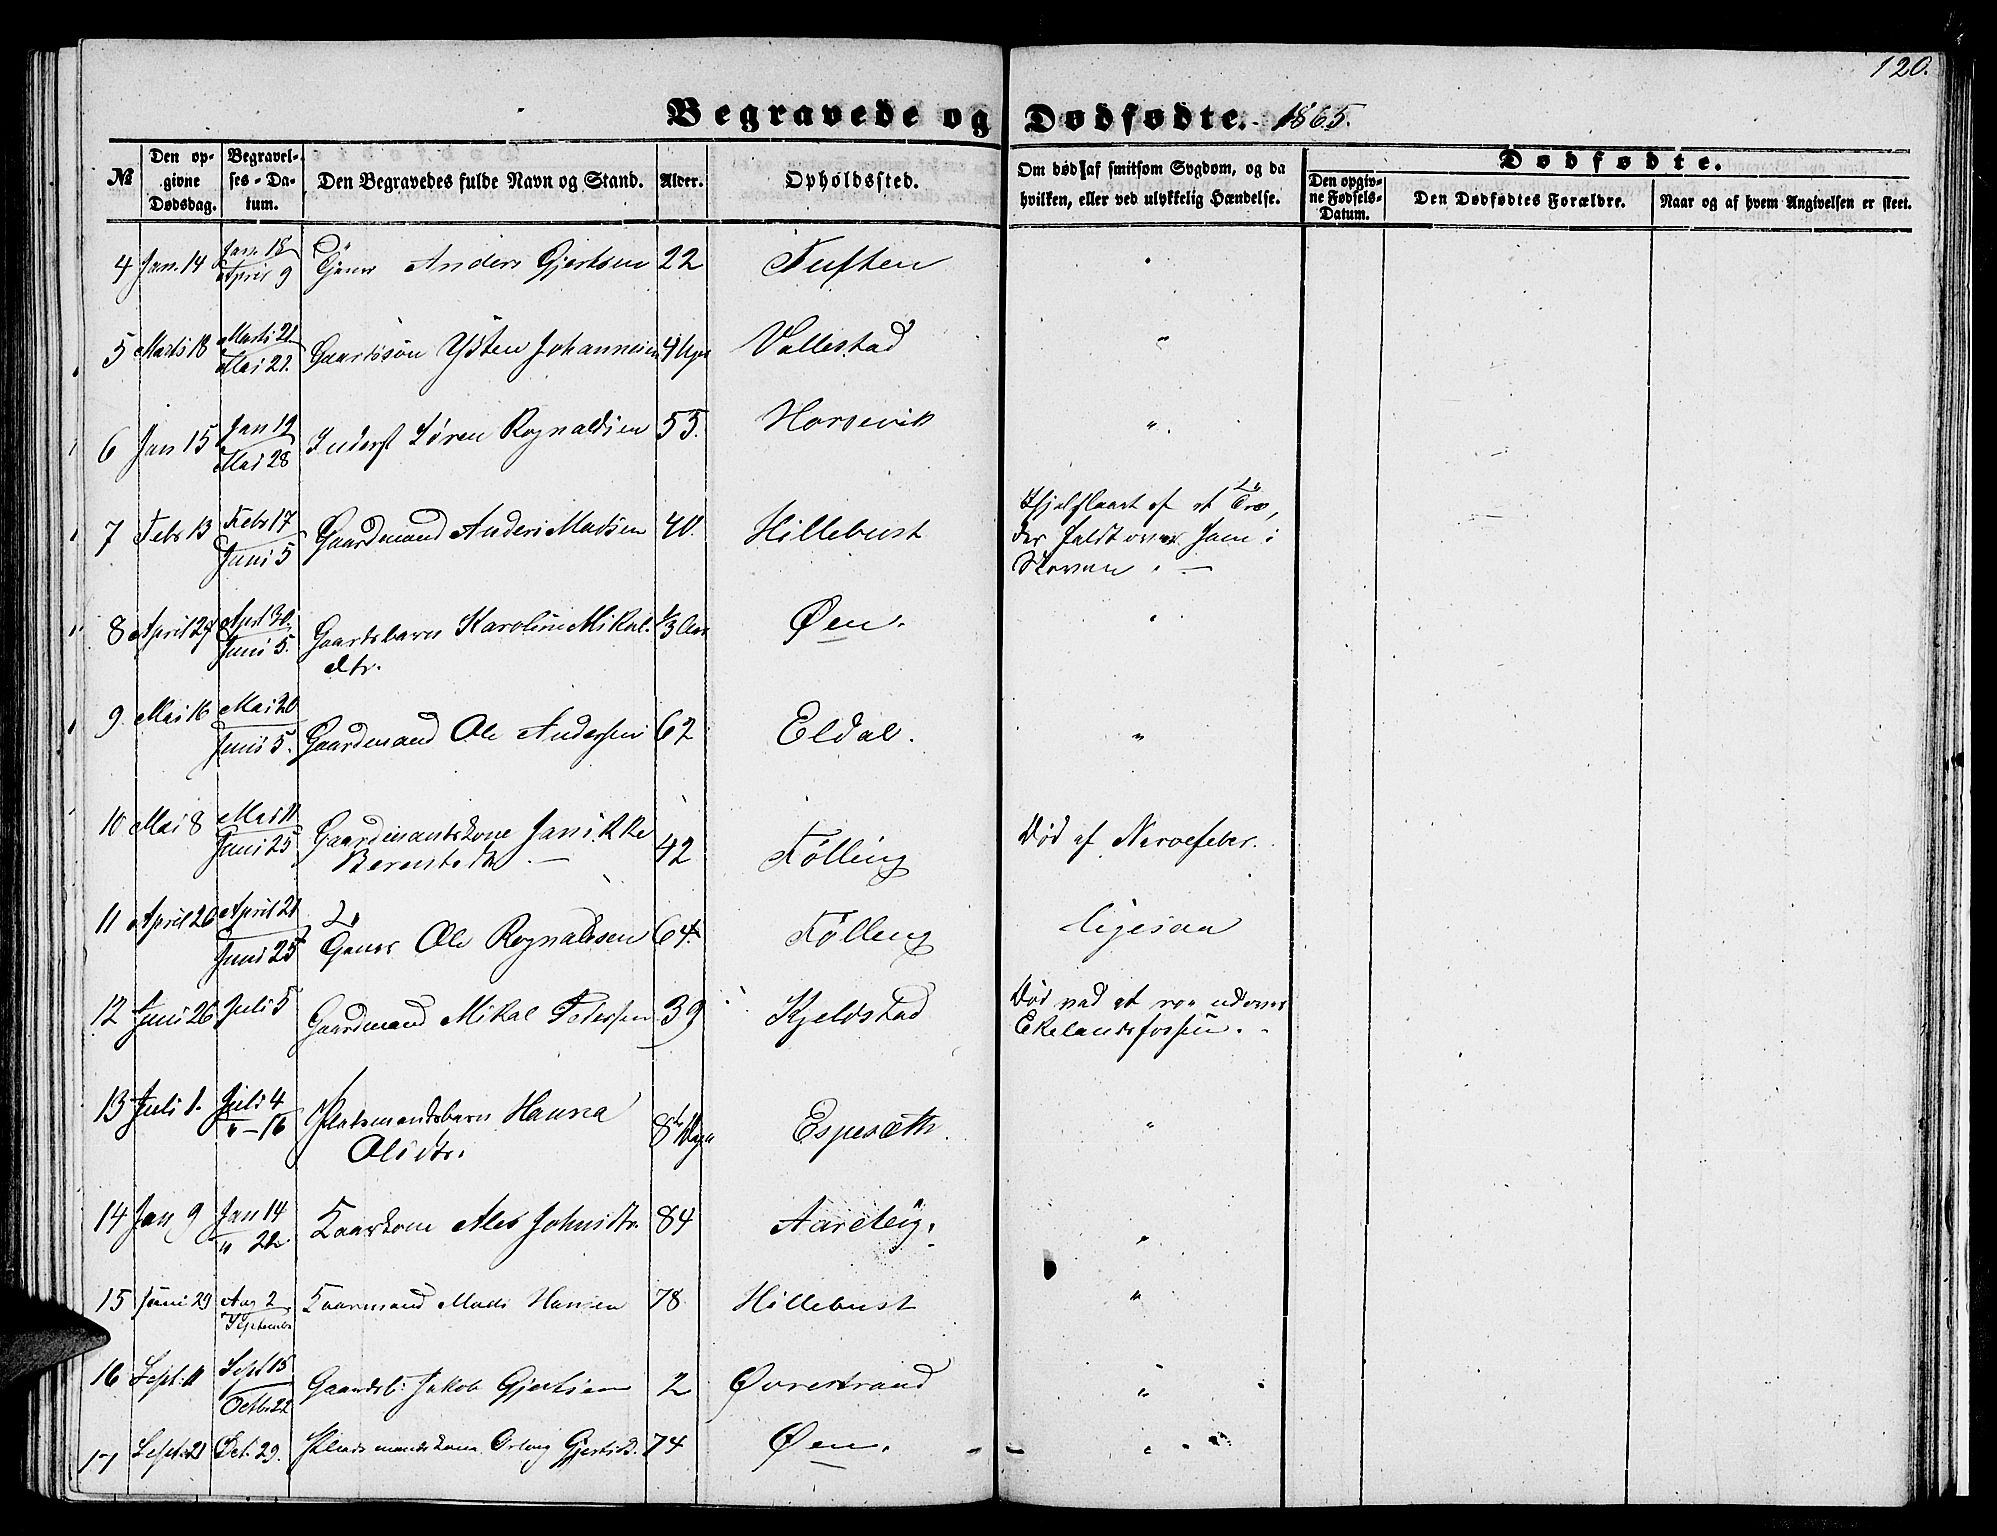 120.
Begravede og Dødfødte. 1865.
№ Den opgivne Dødsdag. Begravelses-Datum. Den Begravedes fulde Navn og Stand. Alder. Opholdssted. Om død af smitsom Sygdom, og da hvilken, eller ved ulykkelig Hændelse. Dødfødte.
Den opgivne Fødsels-Datum. Den Dødfødtes Forældre. Naar og af hvem Angivelsen er skeet.
4 Jan. 14 Jan. 18 April 9 Anders Gjertsen 22 Tuften "
5 Marts 18 Marts 21 Mai 22. Gaardssøn Johannesen 4 Uger Vallestad "
6 Jan 15 Jan 19 Mai 28 Inderst Søren Rognaldsen 55. Horsevik "
7 Febr 13 Febr 17 Juni 5 Gaardmand Anders Madsen 40. Hillebust Ihjelslaaet af et Træ,
der faldt over ham i
Skoven. —
8 April 27 April 30 Juni 5. Gaardsbarn Karoline Mikal- 1/3 Aar Øen. "
dtr.
9. Mai 16 Mai 20 Juni 5. Gaardmand Ole Andersen 62 Eldal. "
10 Mai 8 Mai 11 Juni 25 Gaardmandskone Janikke 42 Følling Død af Nervefeber.
11 April 20 April 21 Juni 25 Ole Rognaldsen 64. Følling ligesaa
12 Juni 26 Juli 5 Gaardmand Mikal Pedersen 39 Kjeldstad Død ved at roe udover
Ekelandsfossen.
13 Juli 1. Juli 4 " – 16 Pladsmandsbarn Hanna 8 Uger Espesæth "
Olsdtr.
14 Jan 9 Jan 14 " 22. Kaarkone Johnsdtr. 84 "
15 Juni 29 Aug 2 September Kaarmand Mads Hansen 78 Hillebust "
16 Sept. 11 Sept 15 Octbr 22 Gaardsb. Jakob Gjertsen 2 Øvrestrand "
17 Sept. 21 Oct. 29. Pladsmandskone Gjertsd. 74 Øen. "